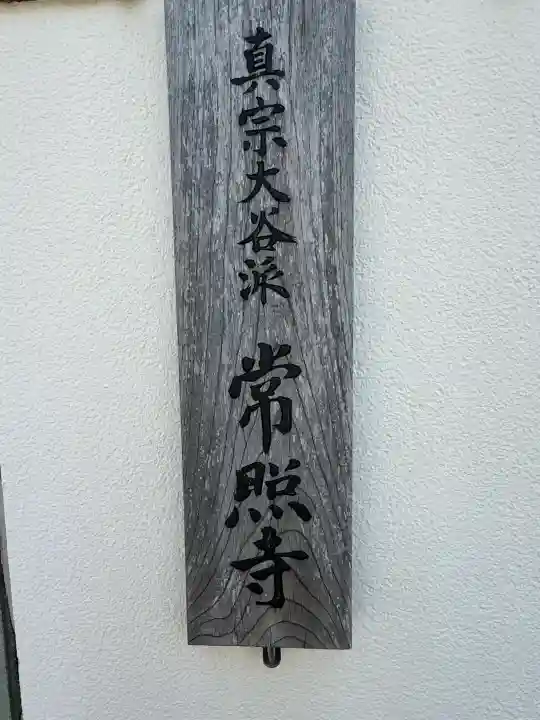 真宗大谷派 常照寺